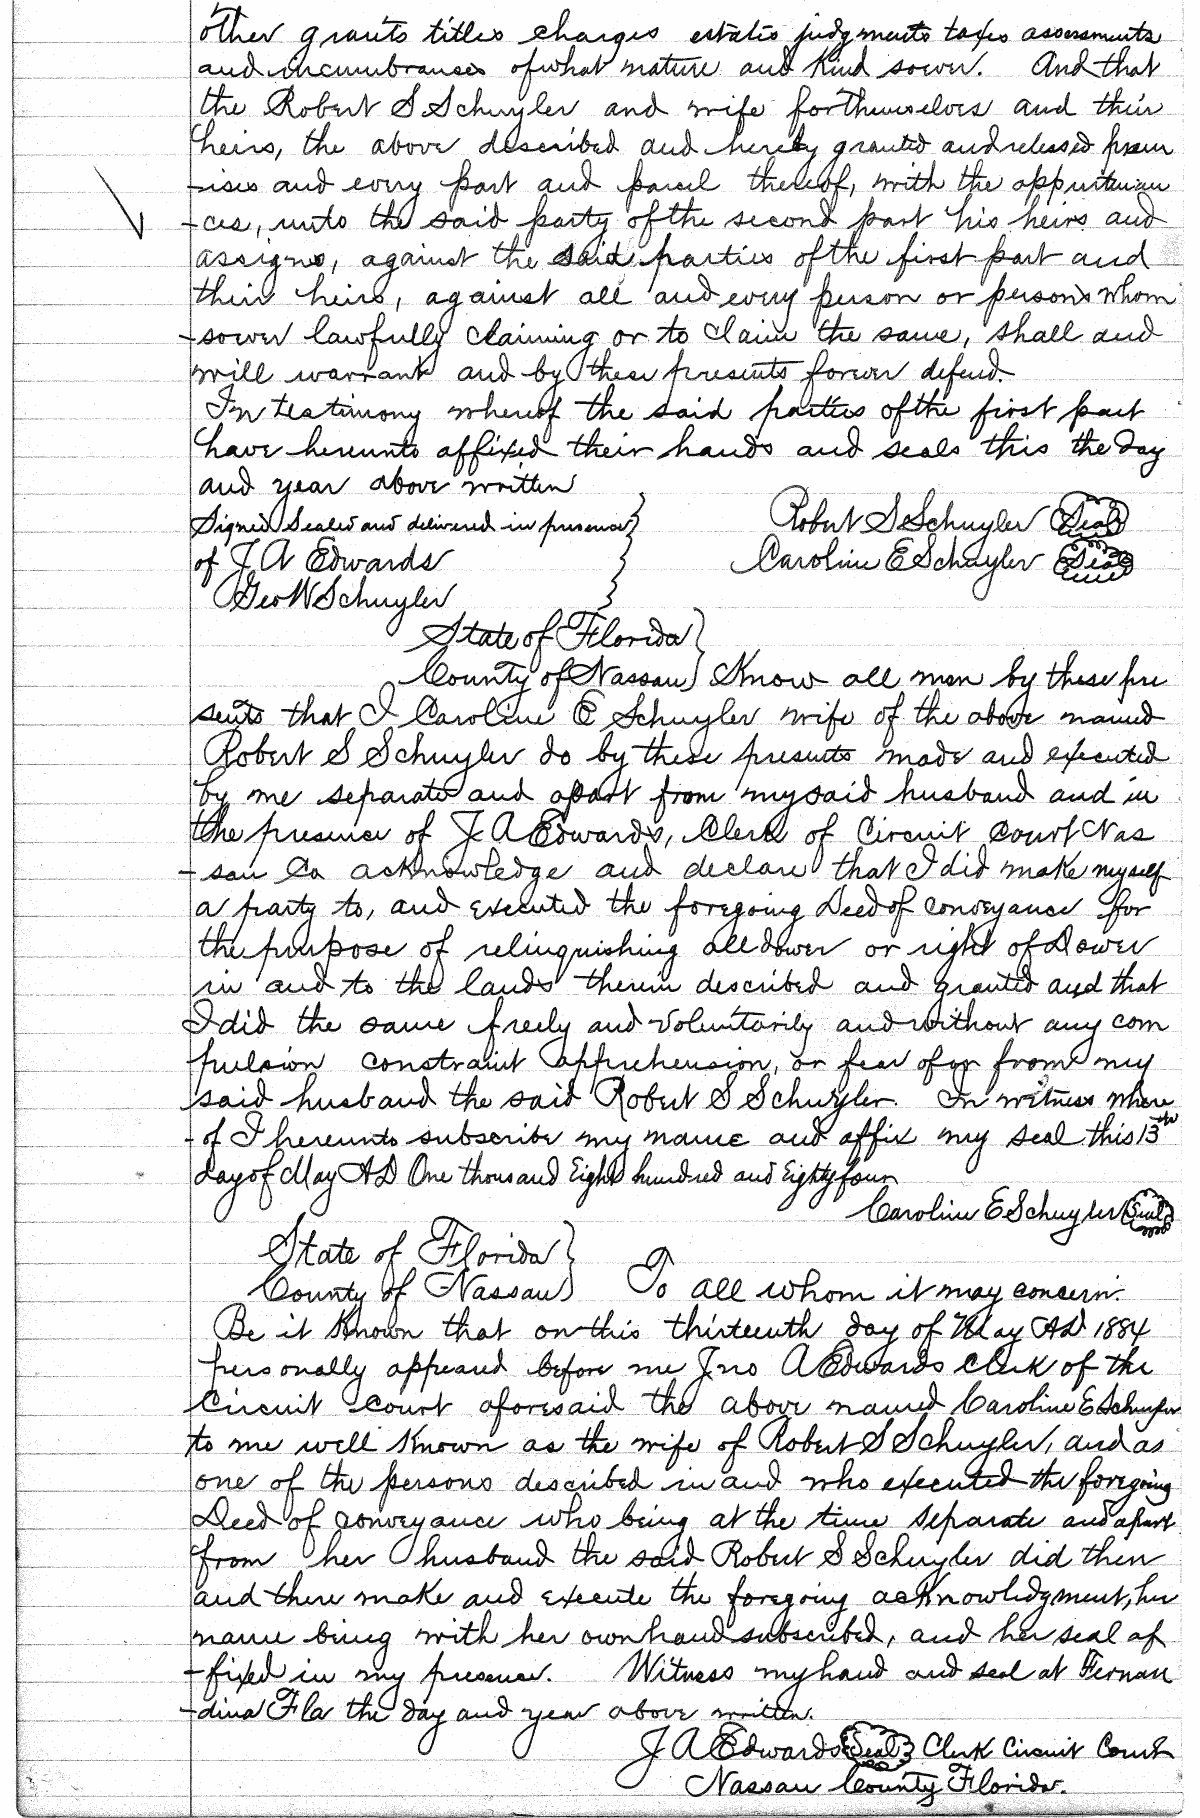 other grants titles charges estates judgments taxes assessments
and incumbrances of what nature and kind soever. And that
the Robert S Schuyler and wife for themselves and their
heirs, the above described and hereby granted and released prem
-ises and every part and parcel thereof, with the appurtenan
-ces, unto the said party of the second part his heirs and
assigns, against the said parties of the first part and
their heirs, against all and every person or persons whom
-soever lawfully claiming or to claim the same, shall and
will warrant and by these presents forever defend.
In testimony whereof the said parties of the first part
have hereunto affixed their hands and seals this the day
and year above written
Signed Sealed and delivered in presence} Robert S Schuyler (Seal)
of J A Edwards Caroline E Schuyler (Seal)
Geo W Schuyler
State of Florida}
County of Nassau} Know all men by these pre
sents that I Caroline E Schuyler wife of the above named
Robert S Schuyler do by these presents made and executed
by me separate and apart from my said husband and in
the presence of J. A Edwards, Clerk of Circuit Court Nas
-sau Co acknowledge and declare that I did make myself
a party to, and executed the foregoing Deed of conveyance for
the purpose of relinquishing all dower or right of Dower
in and to the lands therein described and granted and that
I did the same freely and voluntarily and without any com
pulsion constraint apprehension, or fear of or from my
said husband the said Robert S Schuyler. In witness where
-of I hereunto subscribe my name and affix my seal this 13th
day of May AD One thousand Eight hundred and Eighty four
Caroline E Schuyler (Seal)
State of Florida}
County of Nassau} To all whom it may concern.
Be it Known that on this thirteenth day of May AD 1884
personally appeared before me Jno A Edwards Clerk of the
Circuit Court aforesaid the above named Caroline E Schuyler
to me well Known as the wife of Robert S Schuyler, and as
one of the persons described in and who executed the foregoing
Deed of conveyance who being at the time separate and apart
from her husband the said Robert S Schuyler did then
and there make and execute the foregoing acknowledgment, her
name being with her own hand subscribed, and her seal af
-fixed in my presence. Witness my hand and seal at Fernan
-dina Fla the day and year above written.
J A Edwards (Seal) Clerk Circuit Court
Nassau County Florida.